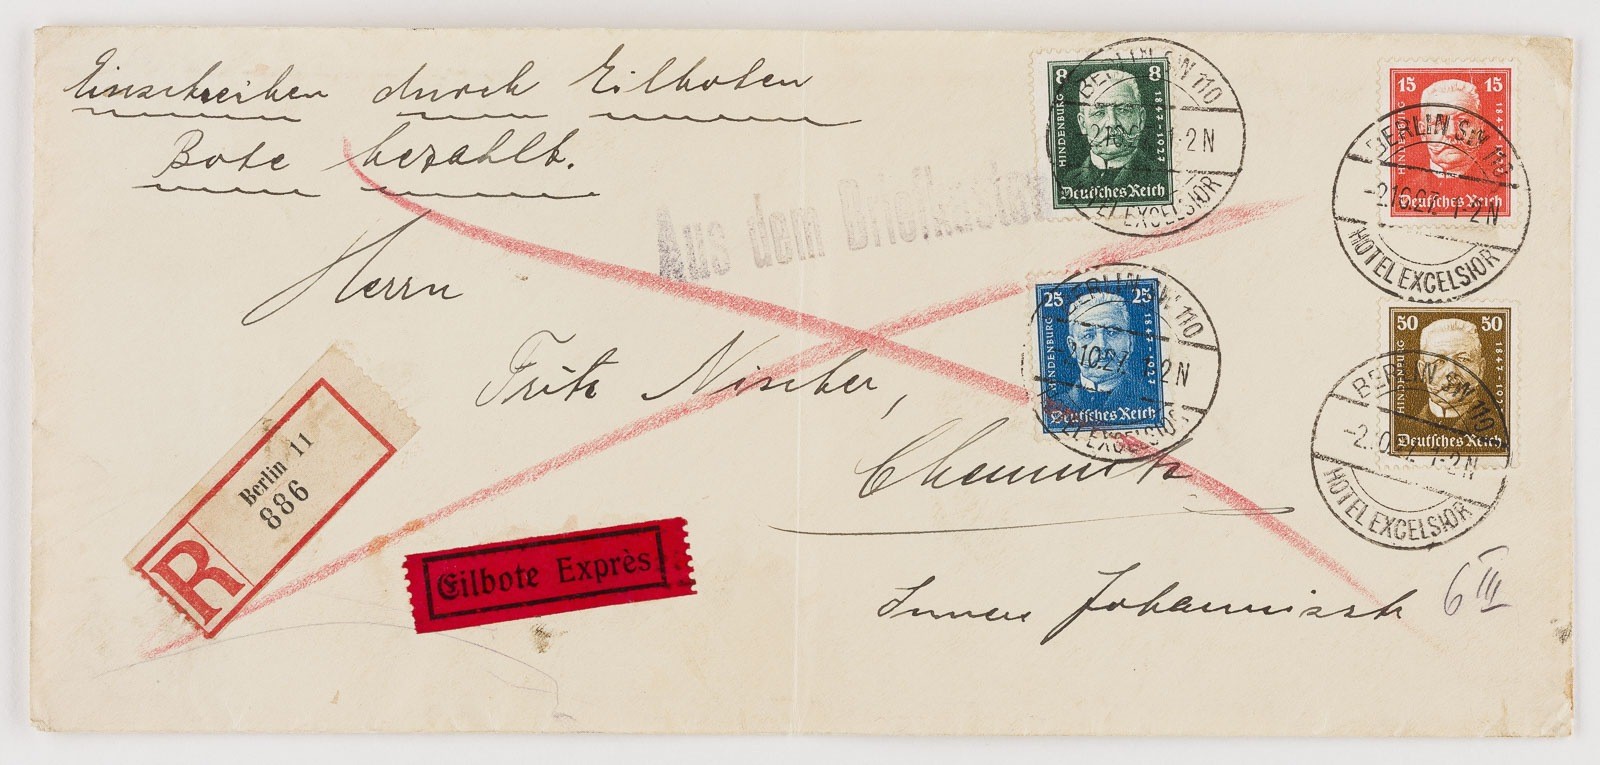 Einschreiben durch Eilboten
Bote bezahlt.
Aus dem Briefkasten
Herrn
Fritz Nischer,
Chemnitz
Innere Johannisstr
6 III
R
Berlin 11
886
Eilbote Exprès
8 8
HINDENBURG
1847-1927
Deutsches Reich
BERLIN SW 110
-2.10.27. 1-2 N
HOTEL EXCELSIOR
15 15
HINDENBURG
1847-1927
Deutsches Reich
BERLIN SW 110
-2.10.27. 1-2 N
HOTEL EXCELSIOR
25 25
HINDENBURG
1847-1927
Deutsches Reich
BERLIN SW 110
-2.10.27. 1-2 N
HOTEL EXCELSIOR
50 50
HINDENBURG
1847-1927
Deutsches Reich
BERLIN SW 110
-2.10.27. 1-2 N
HOTEL EXCELSIOR